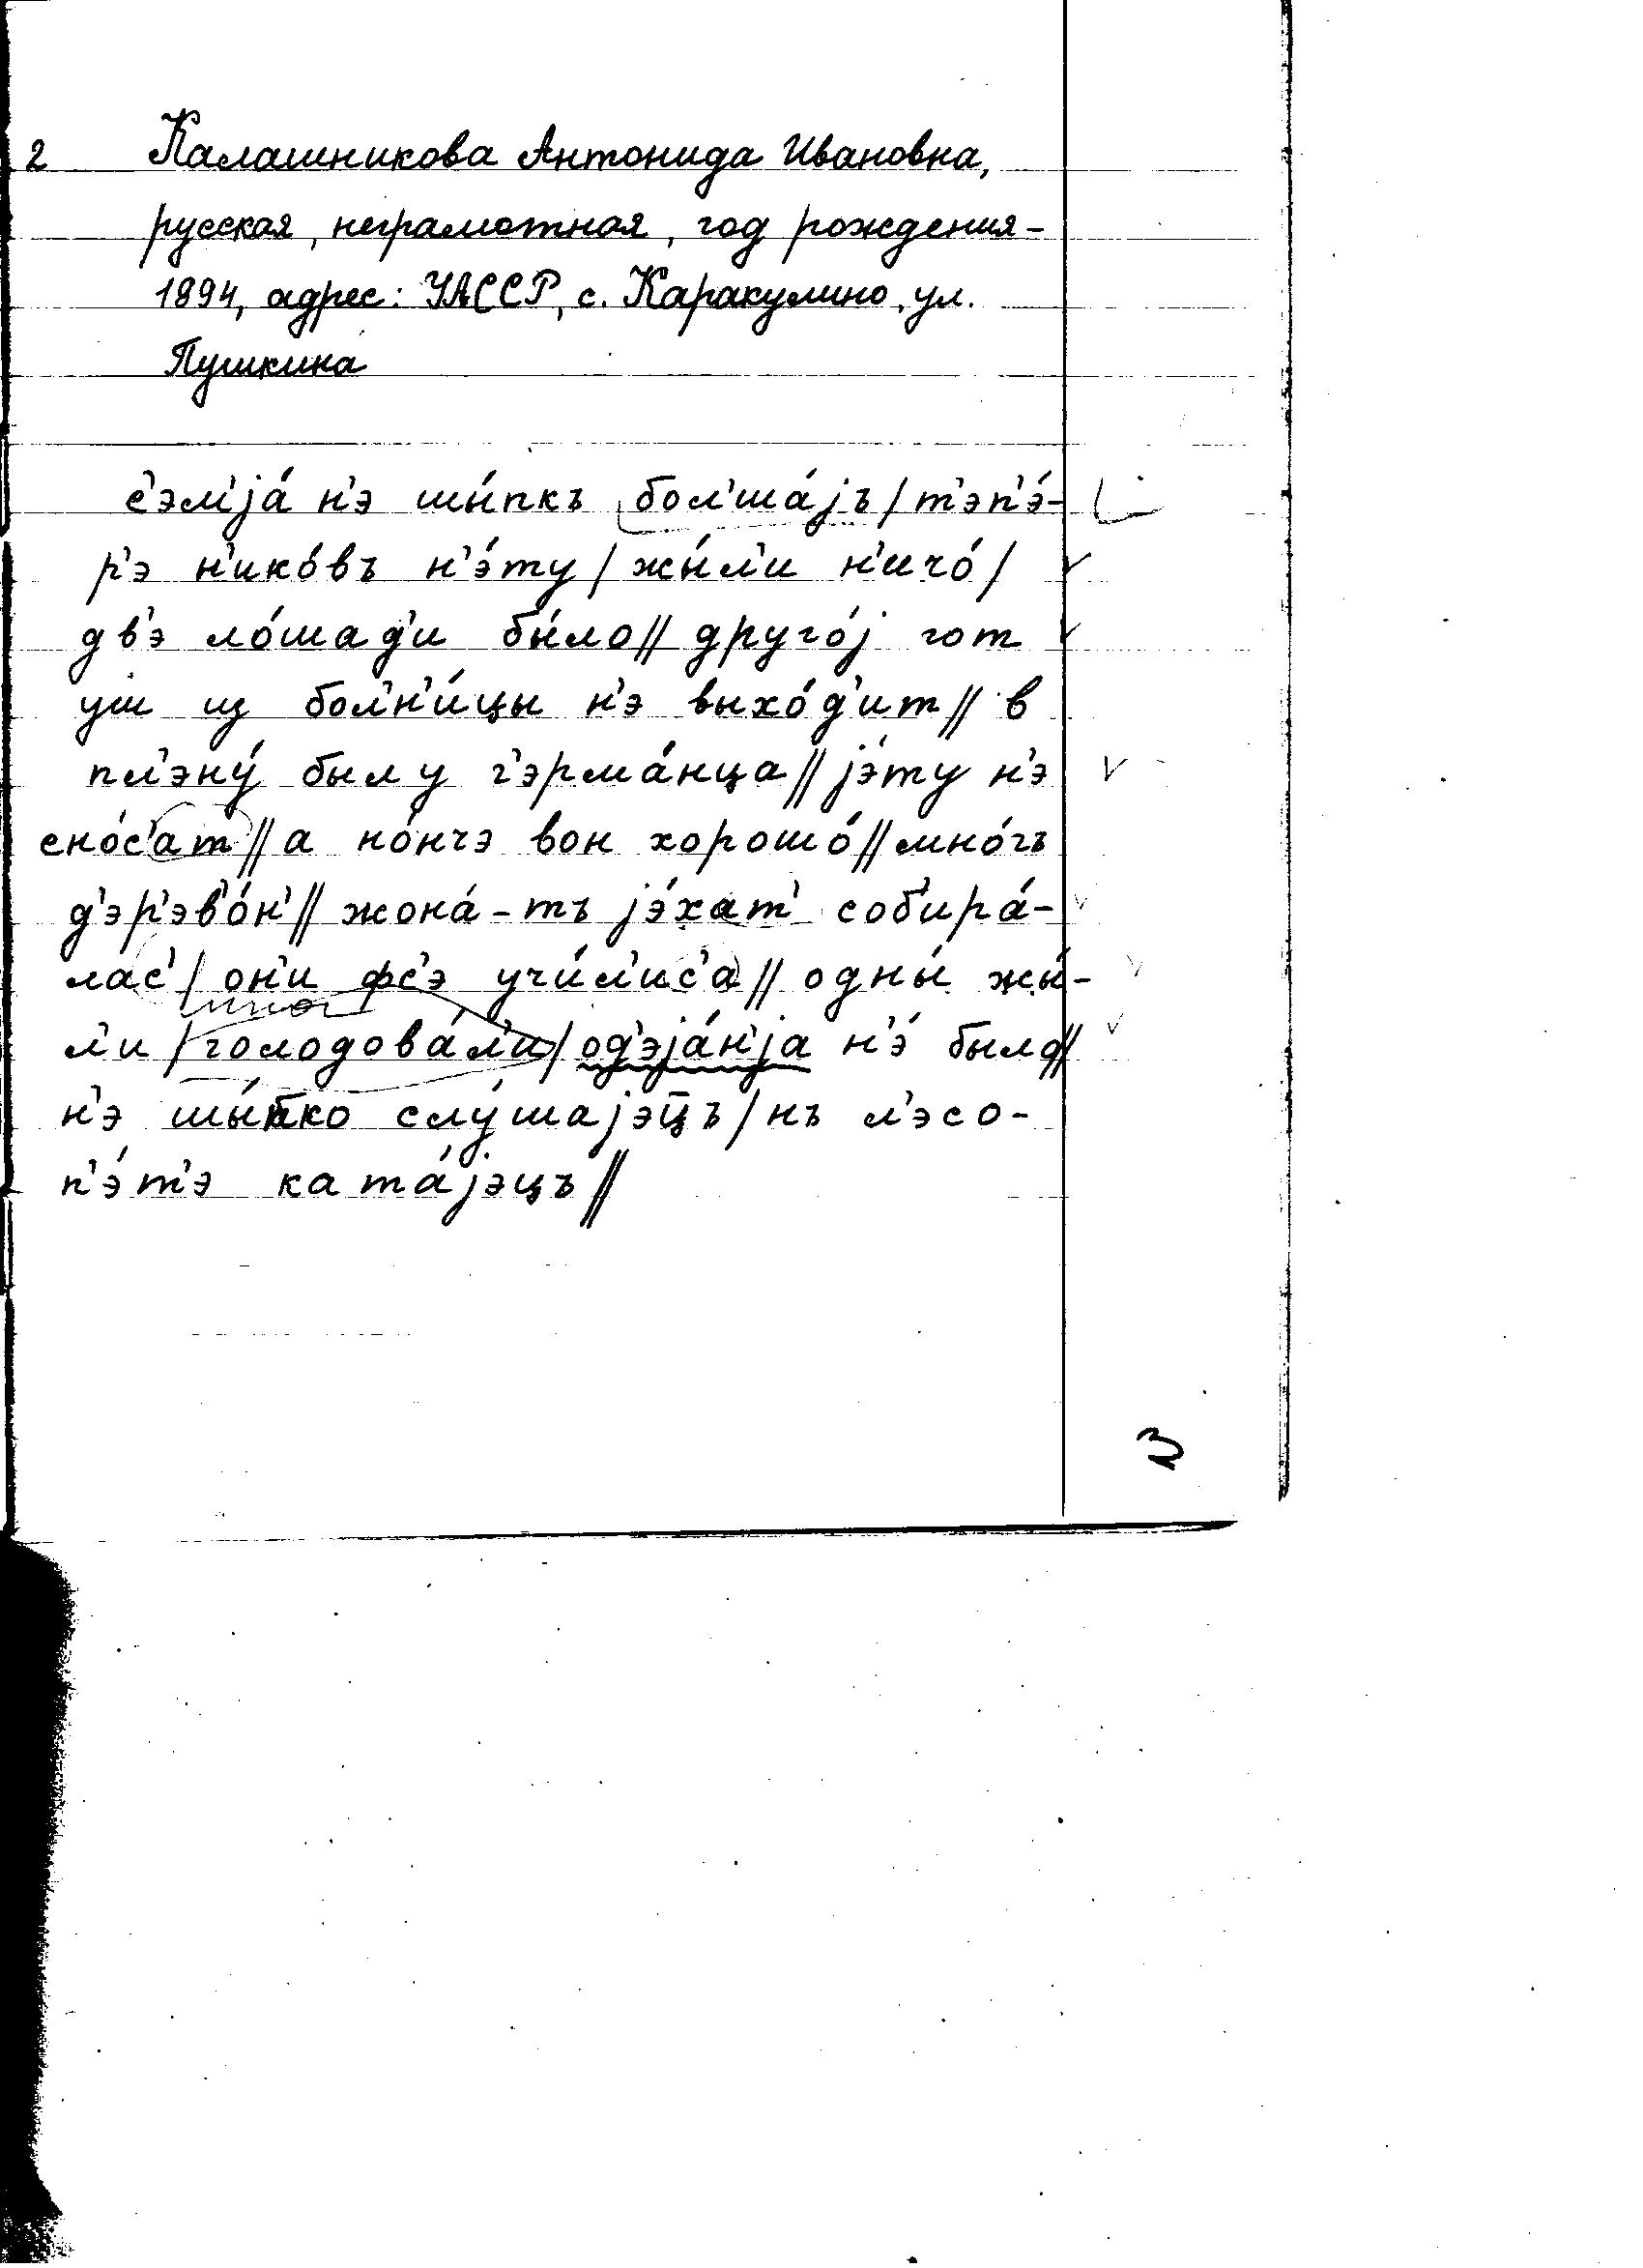 2 Калашникова Антонида Ивановна,
русская, неграмотная, год рождения-
1894, адрес: УАССР, с. Каракулино, ул.
Пушкина
с'эм'jа́ н'э шы́пкъ бол'ша́jъ / т'эп'э́-
р'э н'ико́въ н'э́ту / жы́л'и н'ичо́ /
дв'э ло́шад'и бы́ло // друго́j гот
уш из бол'н'и́цы н'э выхо́д'ит // в
пл'эну́ был у г'эрма́нца // jэ́ту н'э
сно́с'ат // а но́нчэ вон хорошо́ // мно́гъ
д'эр'эв'о́н' // жона́-тъ jэ́хат' соб'ира́-
лас' / он'и фс'э учи́л'ис'а // одны́ жы́-
л'и / голодова́л'и / од'эjа́н'jа н'э́ было //
н'э шы́пко слу́шаjэц̄ъ / нъ л'эсо-
п'э́т'э ката́jэцъ //
3